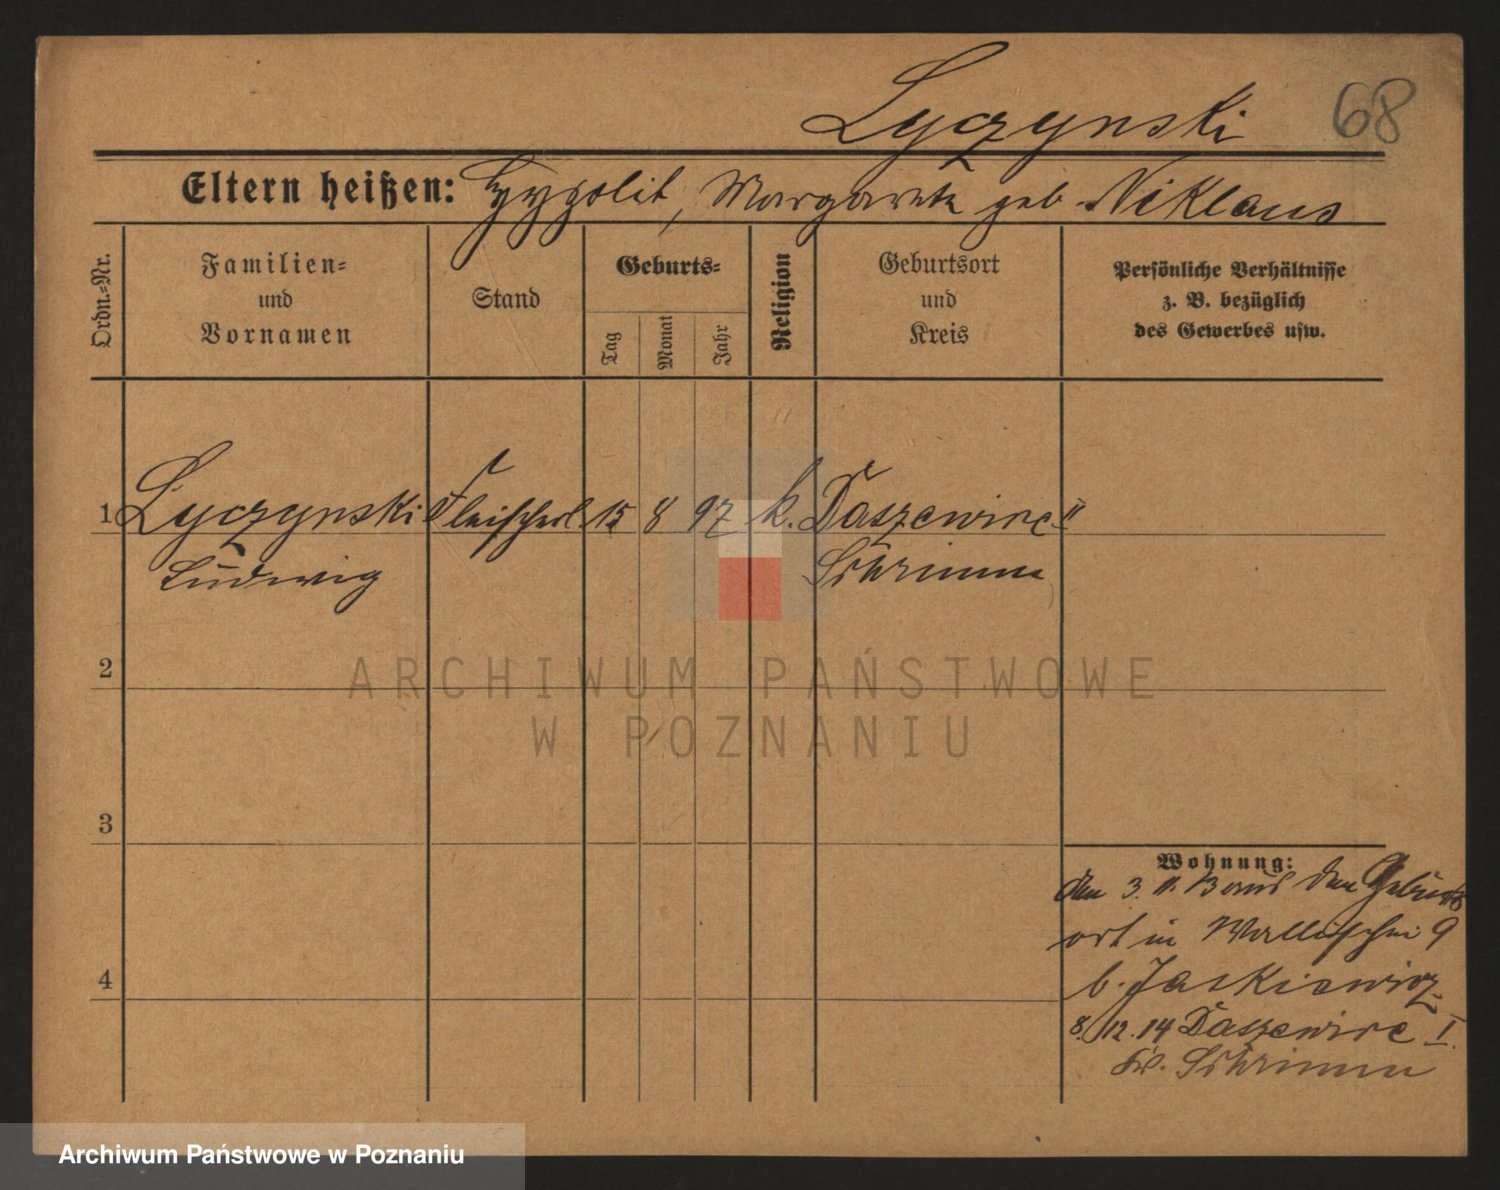 Lyczynski 68
Eltern heißen: Hypolit, Margareta geb. Niklaus
Ordn.-Nr.
Familien-
und
Vornamen
Stand
Geburts-
Tag
Monat
Jahr
Religion
Geburtsort
und
Kreis
Persönliche Verhältnisse
z. B. bezüglich
des Gewerbes usw.
1 Lyczynski Fleischerl. 15 8 97 k. Daszewice II
Ludwig Schrimm
2
ARCHIWUM PAŃSTWOWE
W POZNANIU
3
4
Wohnung:
den 3. 11. 13 aus dem Geburts
ort in Wallischei 9
b. Jaskiewicz
8. 12. 14 Daszewice I.
Kr. Schrimm
Archiwum Państwowe w Poznaniu